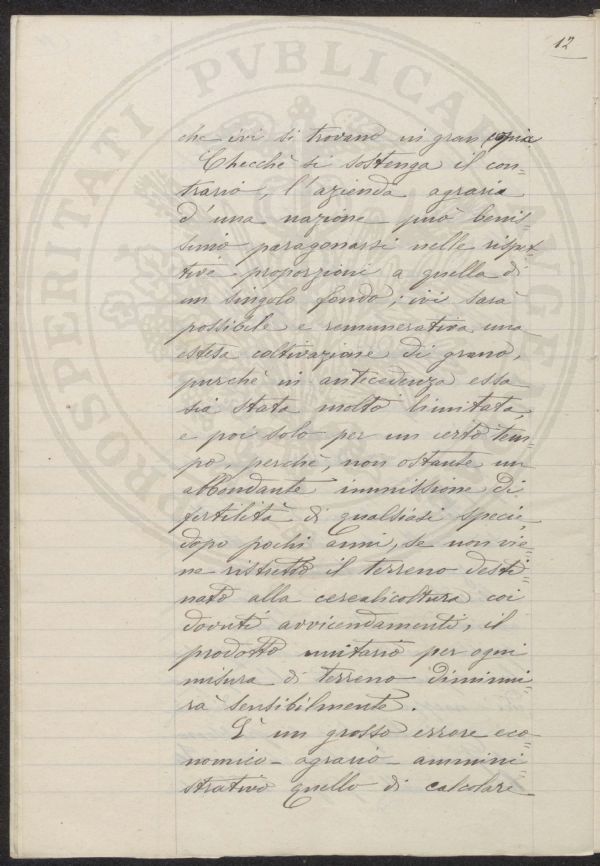 12
che ivi si trovano in gran copia
Checchè si sostenga il con-
trario, l'azienda agraria
d'una nazione può benis-
simo paragonarsi nelle rispet-
tive proporzioni a quella di
un singolo fondo; ivi sarà
possibile e remunerativa una
estesa coltivazione di grano,
purchè in antecedenza essa
sia stata molto limitata,
e poi solo per un certo tem=
po, perchè, non ostante un'
abbondante immissione di
fertilità di qualsiasi specie
dopo pochi anni, se non vie=
ne ristretto il terreno desti=
nato alla cerealicoltura coi
dovuti avvicendamenti, il
prodotto unitario per ogni
misura di terreno diminui=
rà sensibilmente.
È un grosso errore eco=
nomico-agrario-ammini=
strativo quello di calcolare
PROSPERITATI PVBLICAE AVGENDAE